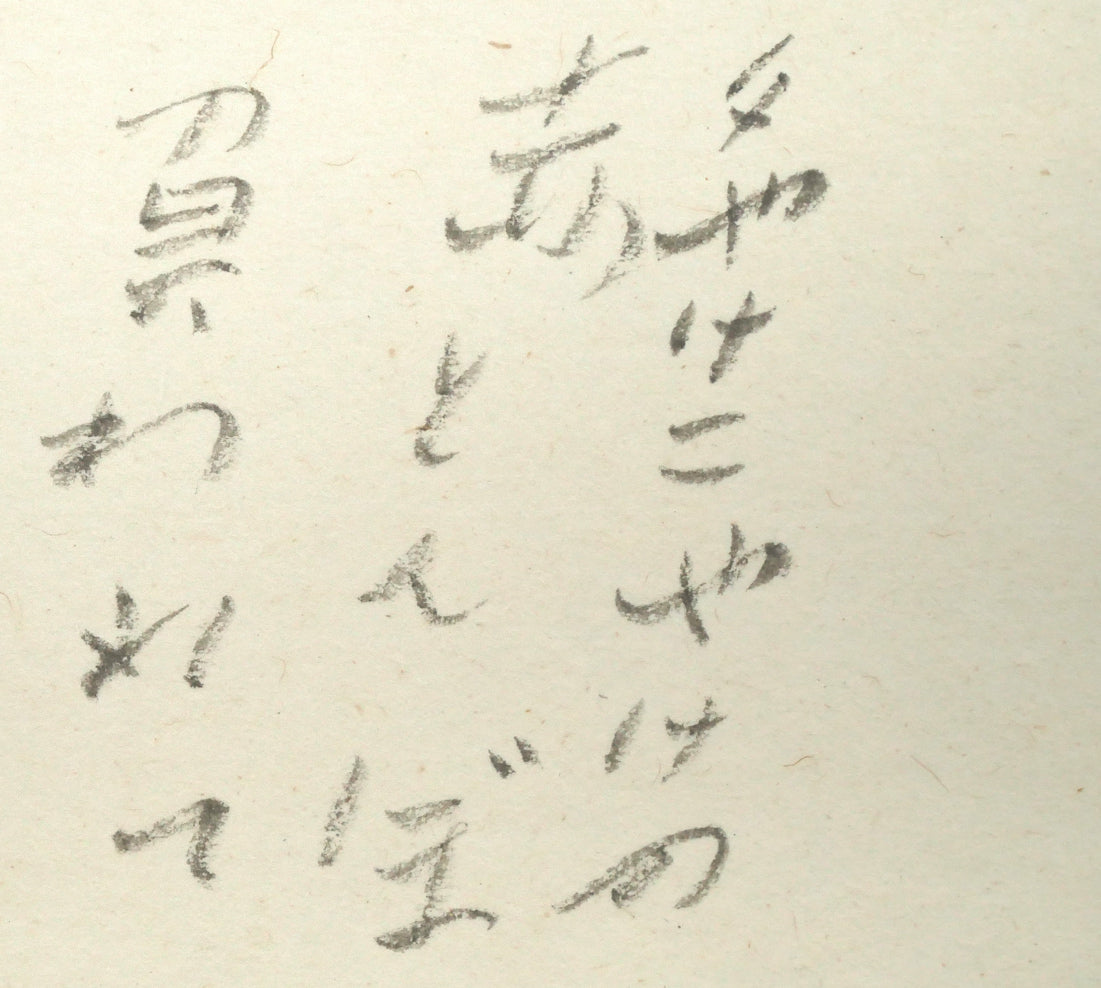 夕やけこやけの
赤とんぼ
負われて